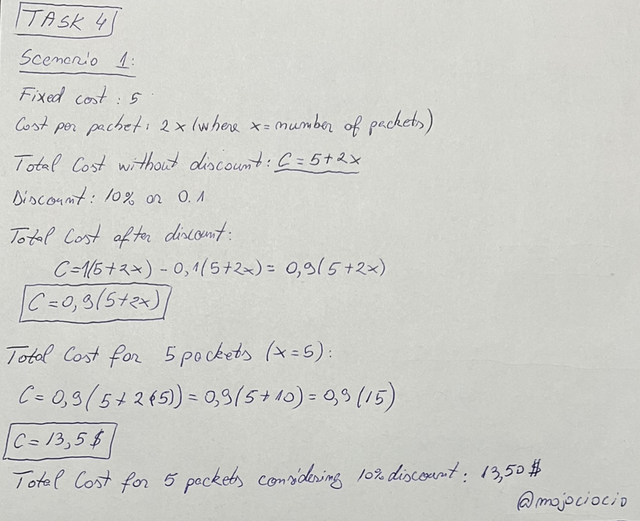 TASK 4
Scenario 1:
Fixed cost: 5
Cost per packet: 2x (where x = number of packets)
Total Cost without discount: C = 5+2x
Discount: 10% or 0.1
Total Cost after discount:
C=1(5+2x) - 0,1(5+2x) = 0,9(5+2x)
C=0,9(5+2x)
Total Cost for 5 packets (x=5):
C= 0,9(5+2(5)) = 0,9(5+10) = 0,9(15)
C= 13,5$
Total Cost for 5 packets considering 10% discount: 13,50$
@mojociocio